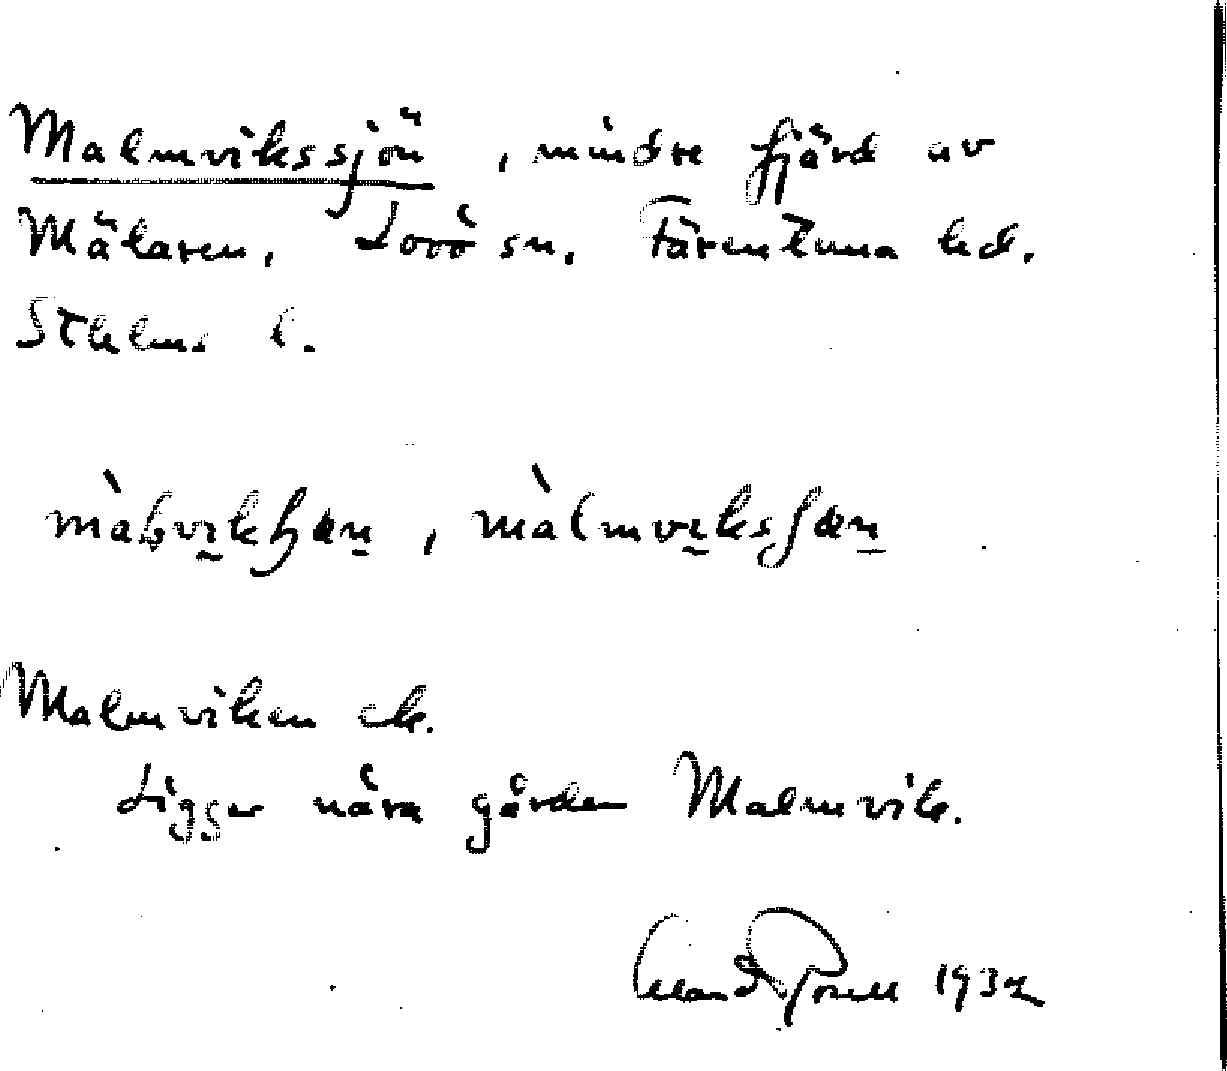 Malmvikssjön, mindre fjärd av
Mälaren, Lovö sn, Färentuna hd.
Sthlms l.
màlmvıksʃɷn
Malmviken ek.
Ligger nära gården Malmvik.
1932